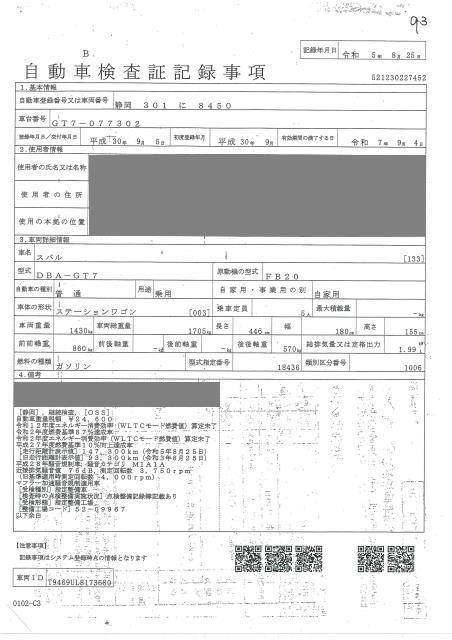 93
B
記録年月日 令和 5年 8月 25日
自動車検査証記録事項
521230227452
1.基本情報
自動車登録番号又は車両番号 静岡 301 に 8450
車台番号 GT7-077302
登録年月日/交付年月日 平成 30年 9月 5日 初度登録年月 平成 30年 9月 有効期間の満了する日 令和 7年 9月 4日
2.使用者情報
使用者の氏名又は名称
使用者の住所
使用の本拠の位置
3.車両詳細情報
車名 スバル [133]
型式 DBA-GT7 原動機の型式 FB20
自動車の種別 普通 用途 乗用 自家用・事業用の別 自家用
車体の形状 ステーションワゴン [003] 乗車定員 5人 最大積載量 -kg
車両重量 1430kg 車両総重量 1705kg 長さ 446cm 幅 180cm 高さ 155cm
前前軸重 860kg 前後軸重 -kg 後前軸重 -kg 後後軸重 570kg 総排気量又は定格出力 1.99L
燃料の種類 ガソリン 型式指定番号 18436 類別区分番号 1006
4.備考
[静岡],継続検査,[OSS]
自動車重量税額 ¥24,600
令和12年度エネルギー消費効率(WLTCモード燃費値)算定未了
令和2年度燃費基準87%達成車
令和2年度エネルギー消費効率(WLTCモード燃費値)算定未了
平成27年度燃費基準10%向上達成車
[走行距離計表示値]147,300km(令和5年8月25日)
[旧走行距離計表示値]93,300km(令和3年8月25日)
平成28年騒音規制車,騒音カテゴリ M1A1A
近接排気騒音値 76dB,測定回転数 3,750rpm
(旧基準適用時測定回転数 4,000rpm)
マフラー加速騒音規制適用車
[受検種別]指定整備車
[検査時の点検整備実施状況]点検整備記録簿記載あり
[受検形態]指定整備工場
[整備工場コード]52-09967
以下余白
【注意事項】
記録事項はシステム登録時点の情報となります
車両ID T9469UL8173680
0102-C3